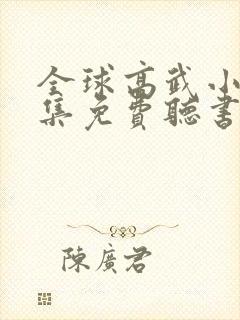 全球高武小
集免費聽書
陳廣君